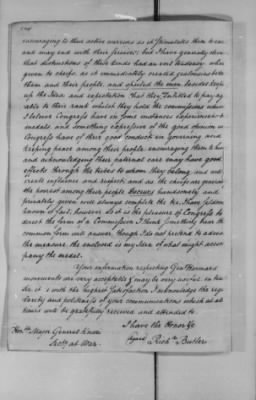 encouraging to their active warriors as it stimulates them to en
and may end with their service; but I have generally seen
that distinctions of these kinds had an evil tendency when
given to chiefs, as it immediately created jealousies betw
them and their people, and spoiled the men besides keeps
up the Idea and expectation that they Entitled to pay ag
able to their rank which they hold the commissions which
I believe Congress have in some instances experienced
medals and something expressive of the good opinion in
Congress have of their good conduct in governing and
keeping peace among their people, encouraging them to
and acknowledging their paternal care may have good
effects through the tribes to whom they belong, and will
create influence and respect, and as the chiefs are generally
the poorest among their people dresses handsomely and
privately given will always complete the
known of fact, however as it is the pleasure of Congress to
direct the form of a Commission I think something here the
common form will answer, though I do not pretend to advise
the measure the enclosed is my Idea of what might accom
pany the medal.
Your information respecting Genl Harmars
movements are very acceptable & may be very useful
it is with the highest Satisfaction I acknowledge the regu
larity and politeness of your communications which at all
times will be gratefully received and attended to
I have the Honor &c
Signd Richd Butler
Honble Major General Knox
Secty at War